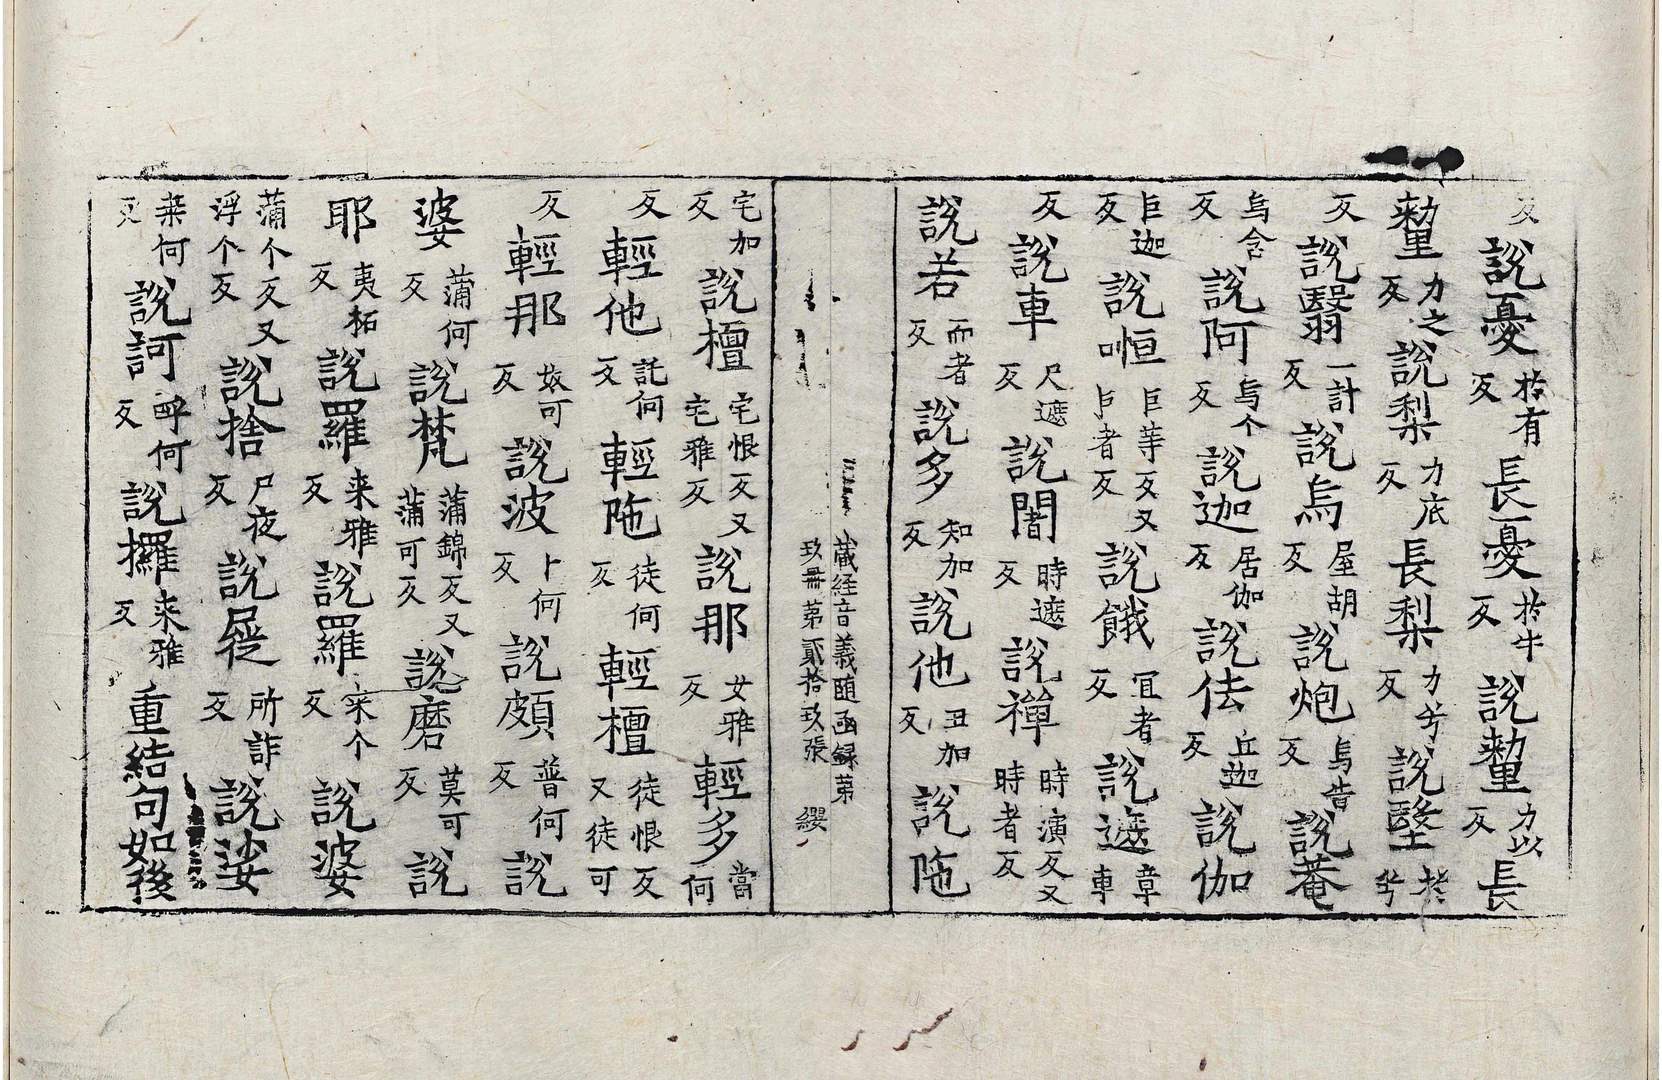 反說憂於有反長憂於牛反說釐力以反長
釐力之反說梨力底反長梨力兮反說瑿於兮
反說翳一計反說烏屋胡反說炮烏告反說菴
烏含反說阿烏个反說迦居伽反說佉丘迦反說伽
巨迦反說㔰巨䓁反又巨者反說餓冝者反說遮章車
反說車尺遮反說闍時遮反說禪時演反又時者反
說若而者反說多知加反說他丑加反說陁
藏経音義随函録弟
玖冊第貳拾玖張 纓
宅加反說檀宅恨反又宅雅反說那女雅反輕多當何
反輕他託何反輕陁徒何反輕檀徒恨反又徒可
反輕那奴可反說波卜何反說頗普何反說
婆蒲何反說梵蒲錦反又蒲可反說磨莫可反說
耶夷柘反說羅来雅反說羅来个反說婆
蒲个反又浮个反說捨尸夜反說屣所詐反說娑
桒何反說訶呼何反說攞来雅反重結句如後